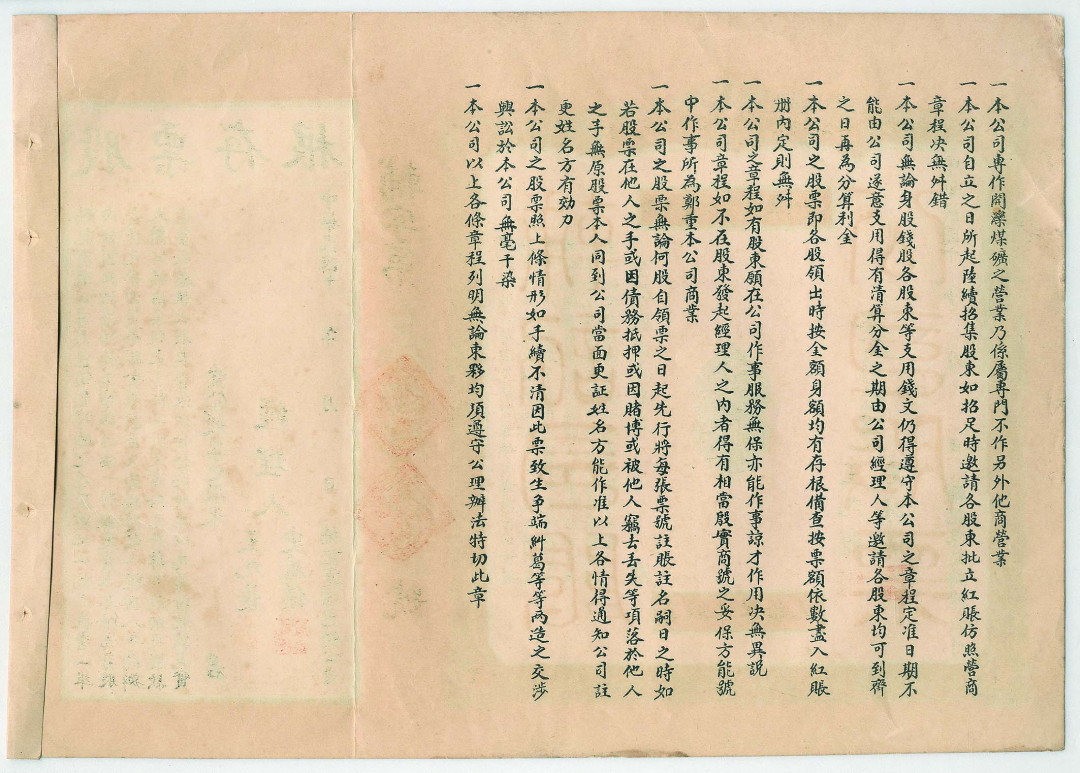 一本公司專作開灤煤礦之營業乃係屬專門不作另外他商營業
一本公司自立之日所起陸續招集股東如招足時邀請各股東批立紅賬仿照營商
章程决無舛錯
一本公司無論身股錢股各股東等支用錢文仍得遵守本公司之章程定准日期不
能由公司遂意支用得有清算分金之期由公司經理人等邀請各股東均可到齊
之日再為分算利金
一本公司之股票即各股領出時按全額身額均有存根備查按票額依數盡入紅賬
册内定則無舛
一本公司之章程如有股東願在公司作事服務無保亦能作事諒才作用决無異説
一本公司章程如不在股東發起經理人之内者得有相當殷實商號之妥保方能號
中作事所為鄭重本公司商業
一本公司之股票無論何股自領票之日起先行將每張票號註賬註名嗣日之時如
若股票在他人之手或因債務抵押或因賭博或被他人竊去丟失等項落於他人
之手無原股票本人同到公司當面更証姓名方能作准以上各情得通知公司註
更姓名方有効力
一本公司之股票照上條情形如手續不清因此票致生争端糾葛等等兩造之交涉
興訟於本公司無毫干染
一本公司以上各條章程列明無論東夥均須遵守公理辦法特切此章